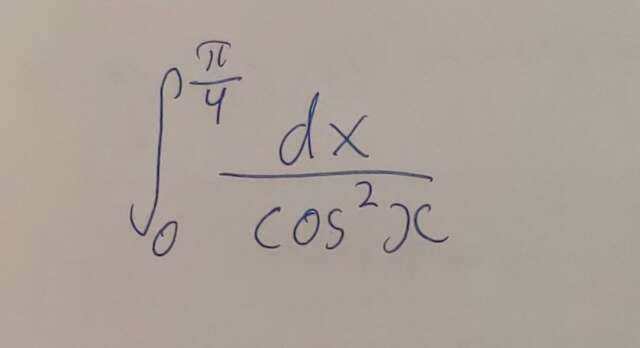 ∫₀^{π/4} dx / cos²x